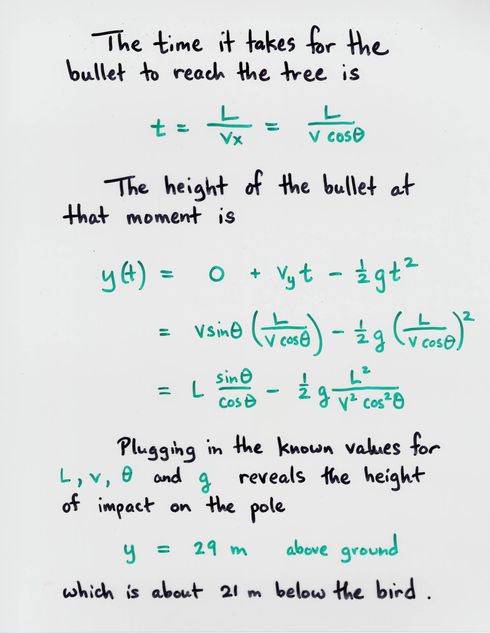 The time it takes for the
bullet to reach the tree is
t = L/Vx = L/(V cosθ)
The height of the bullet at
that moment is
y(t) = 0 + Vyt - ½gt²
= Vsinθ (L/(V cosθ)) - ½g (L/(V cosθ))²
= L sinθ/cosθ - ½g L²/(V² cos²θ)
Plugging in the known values for
L, v, θ and g reveals the height
of impact on the pole
y = 29 m above ground
which is about 21 m below the bird.